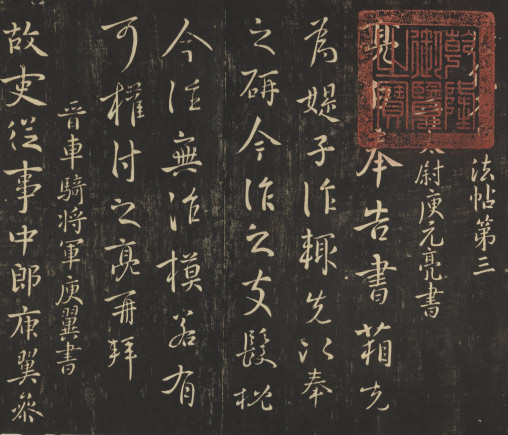 乾隆御覽之寶
法帖第三
尉庾元亮書
奉告書箱先
為媞子作輙先以奉
之研今作之支髮枕
今往無治模若有
可權付之亮再拜
晉車騎將軍庾翼書
故吏從事中郎庾翼參